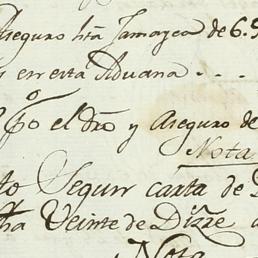 Aseguro hta Jamayca de 6.
en esta Aduana . . .
po el dro y Aseguro de
Nota
to Segun carta de
ha Veinte de Dizre
Nota